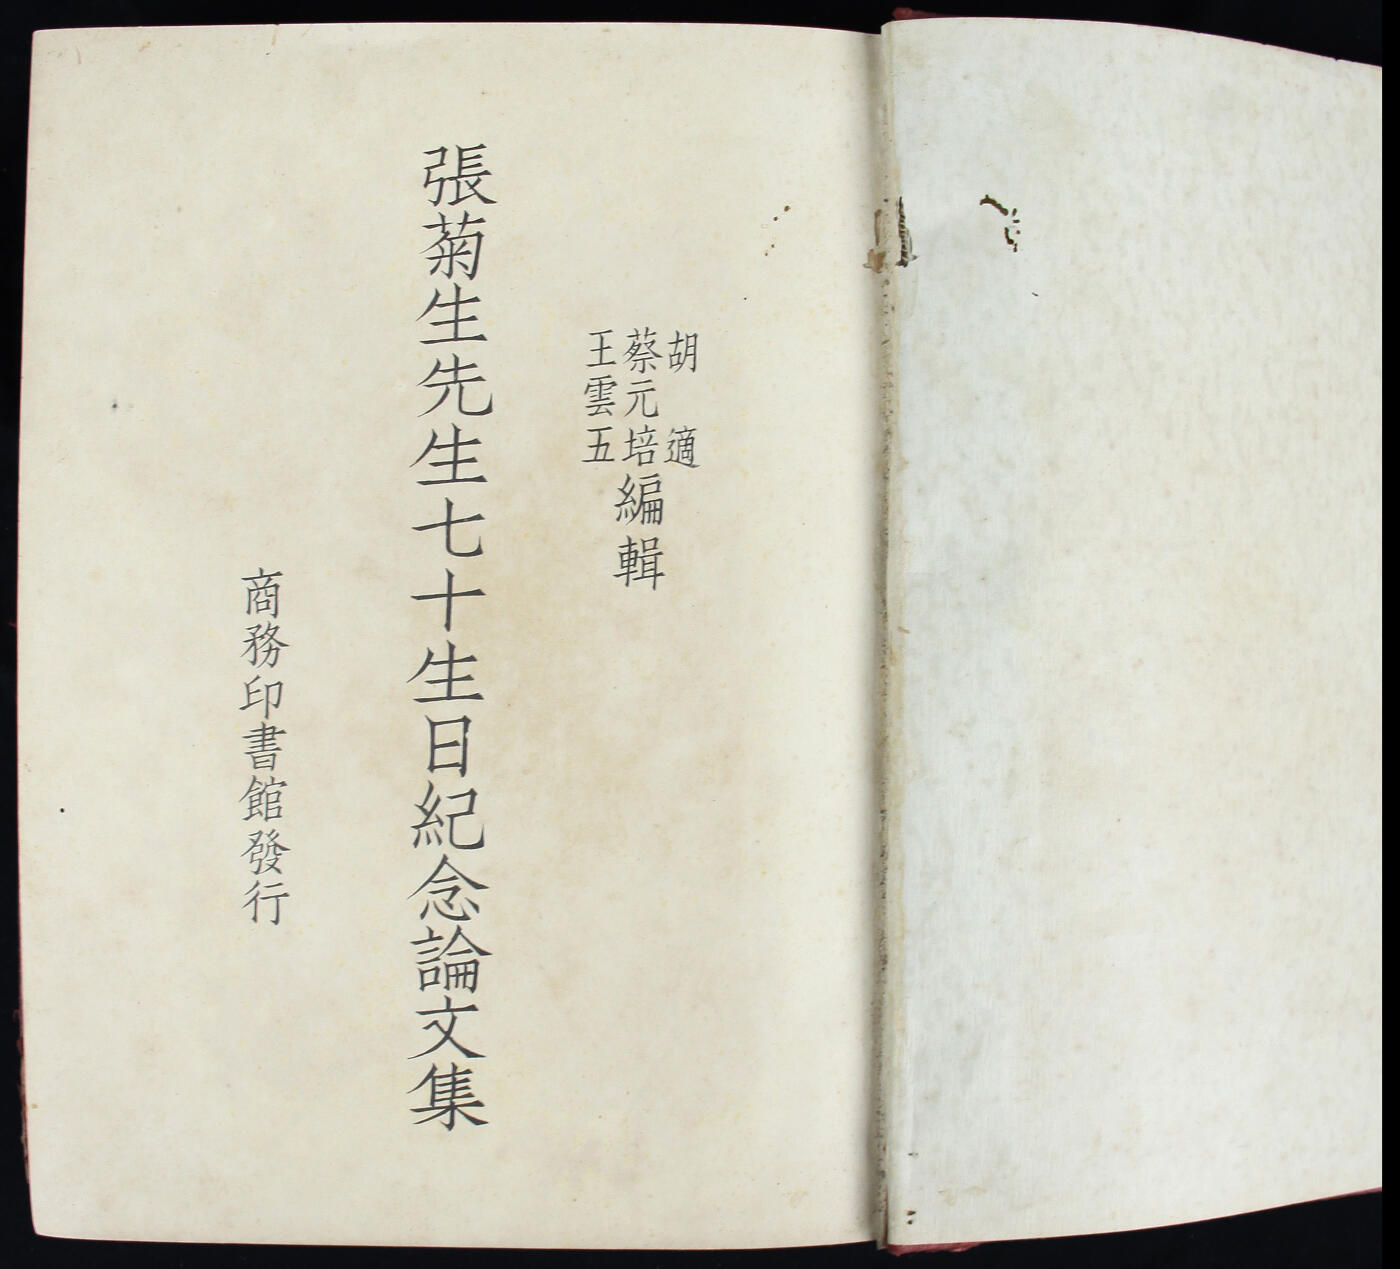 胡適
蔡元培
王雲五
編輯
張菊生先生七十生日紀念論文集
商務印書館發行